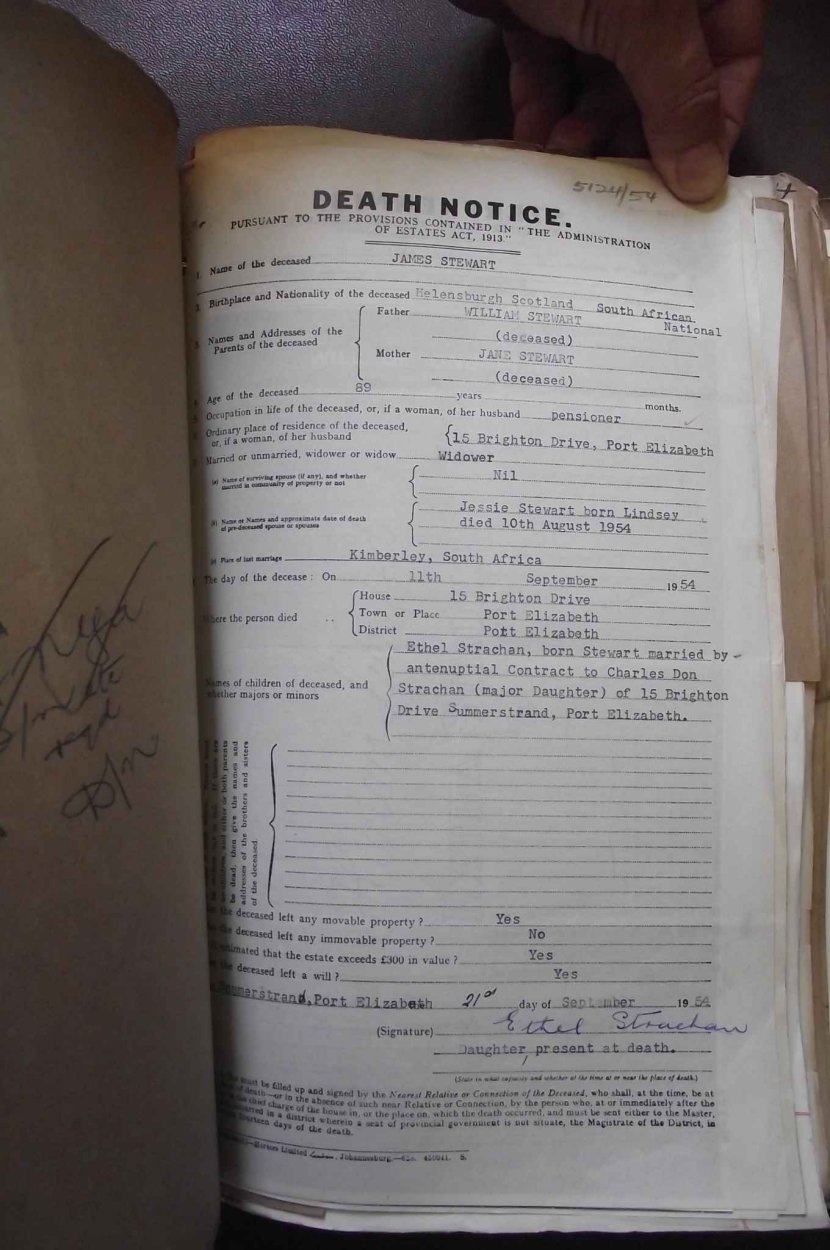 5124/54
DEATH NOTICE.
PURSUANT TO THE PROVISIONS CONTAINED IN "THE ADMINISTRATION
OF ESTATES ACT, 1913."
1. Name of the deceased JAMES STEWART
2. Birthplace and Nationality of the deceased Helensburgh Scotland South African
National
3. Names and Addresses of the
Parents of the deceased
Father WILLIAM STEWART
(deceased)
Mother JANE STEWART
(deceased)
Age of the deceased 89 years months.
Occupation in life of the deceased, or, if a woman, of her husband pensioner
Ordinary place of residence of the deceased,
or, if a woman, of her husband
15 Brighton Drive, Port Elizabeth
Married or unmarried, widower or widow Widower
(a) Name of surviving spouse (if any), and whether
married in community of property or not
Nil
(b) Name or Names and approximate date of death
of pre-deceased spouse or spouses
Jessie Stewart born Lindsey
died 10th August 1954
(c) Place of last marriage Kimberley, South Africa
The day of the decease: On 11th September 1954
Where the person died ..
House 15 Brighton Drive
Town or Place Port Elizabeth
District Port Elizabeth
Names of children of deceased, and
whether majors or minors
Ethel Strachan, born Stewart married by
antenuptial Contract to Charles Don
Strachan (major Daughter) of 15 Brighton
Drive Summerstrand, Port Elizabeth.
and either or both parents
be dead, then give the names and
addresses of the brothers and sisters
of the deceased.
the deceased left any movable property? Yes
the deceased left any immovable property? No
estimated that the estate exceeds £300 in value? Yes
the deceased left a will? Yes
Summerstrand, Port Elizabeth 21st day of September 1954
(Signature) Ethel Strachan
Daughter, present at death.
(State in what capacity and whether at the time at or near the place of death.)
must be filled up and signed by the Nearest Relative or Connection of the Deceased, who shall, at the time, be at
of death—or in the absence of such near Relative or Connection, by the person who, at or immediately after the
chief charge of the house in, or the place on, which the death occurred, and must be sent either to the Master,
occurred in a district wherein a seat of provincial government is not situate, the Magistrate of the District, in
fourteen days of the death.
Limited Johannesburg.